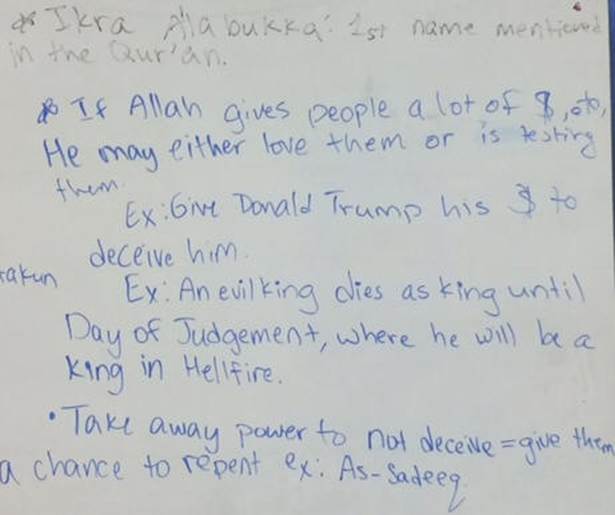 * Ikra Allabukka: 1st name mentioned
in the Qur'an.
* If Allah gives people a lot of $, etc,
He may either love them or is testing
them.
Ex: Give Donald Trump his $ to
deceive him.
takun
Ex: An evil king dies as king until
Day of Judgement, where he will be a
king in Hellfire.
• Take away power to not deceive = give them
a chance to repent ex: As-Sadeeq